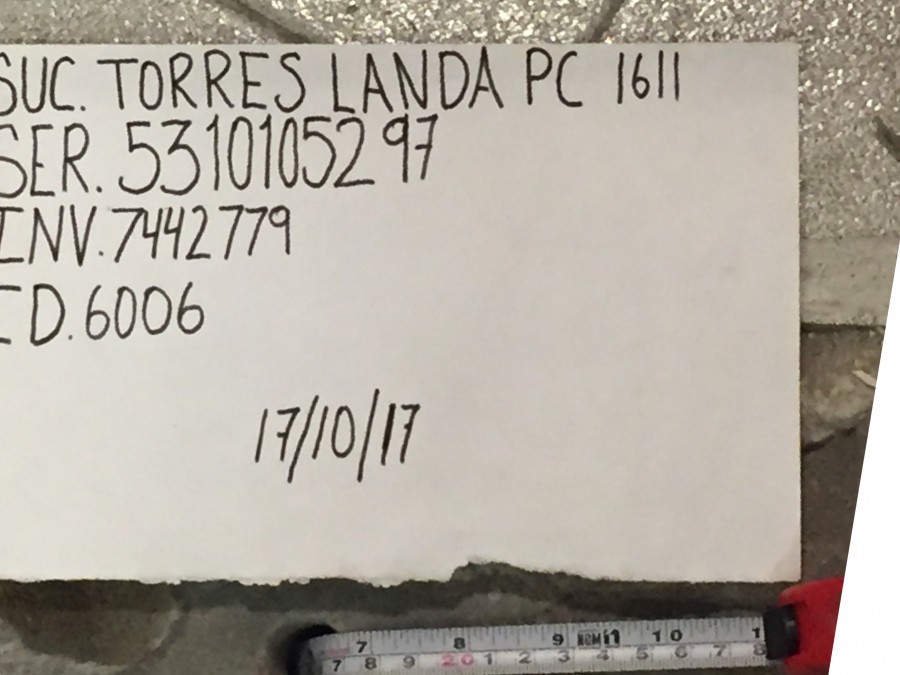 SUC. TORRES LANDA PC 1611
SER. 53101052 97
INV. 7442779
ID. 6006
17/10/17
7 8 9 10 1
7 8 9 20 1 2 3 4 5 6 7 8